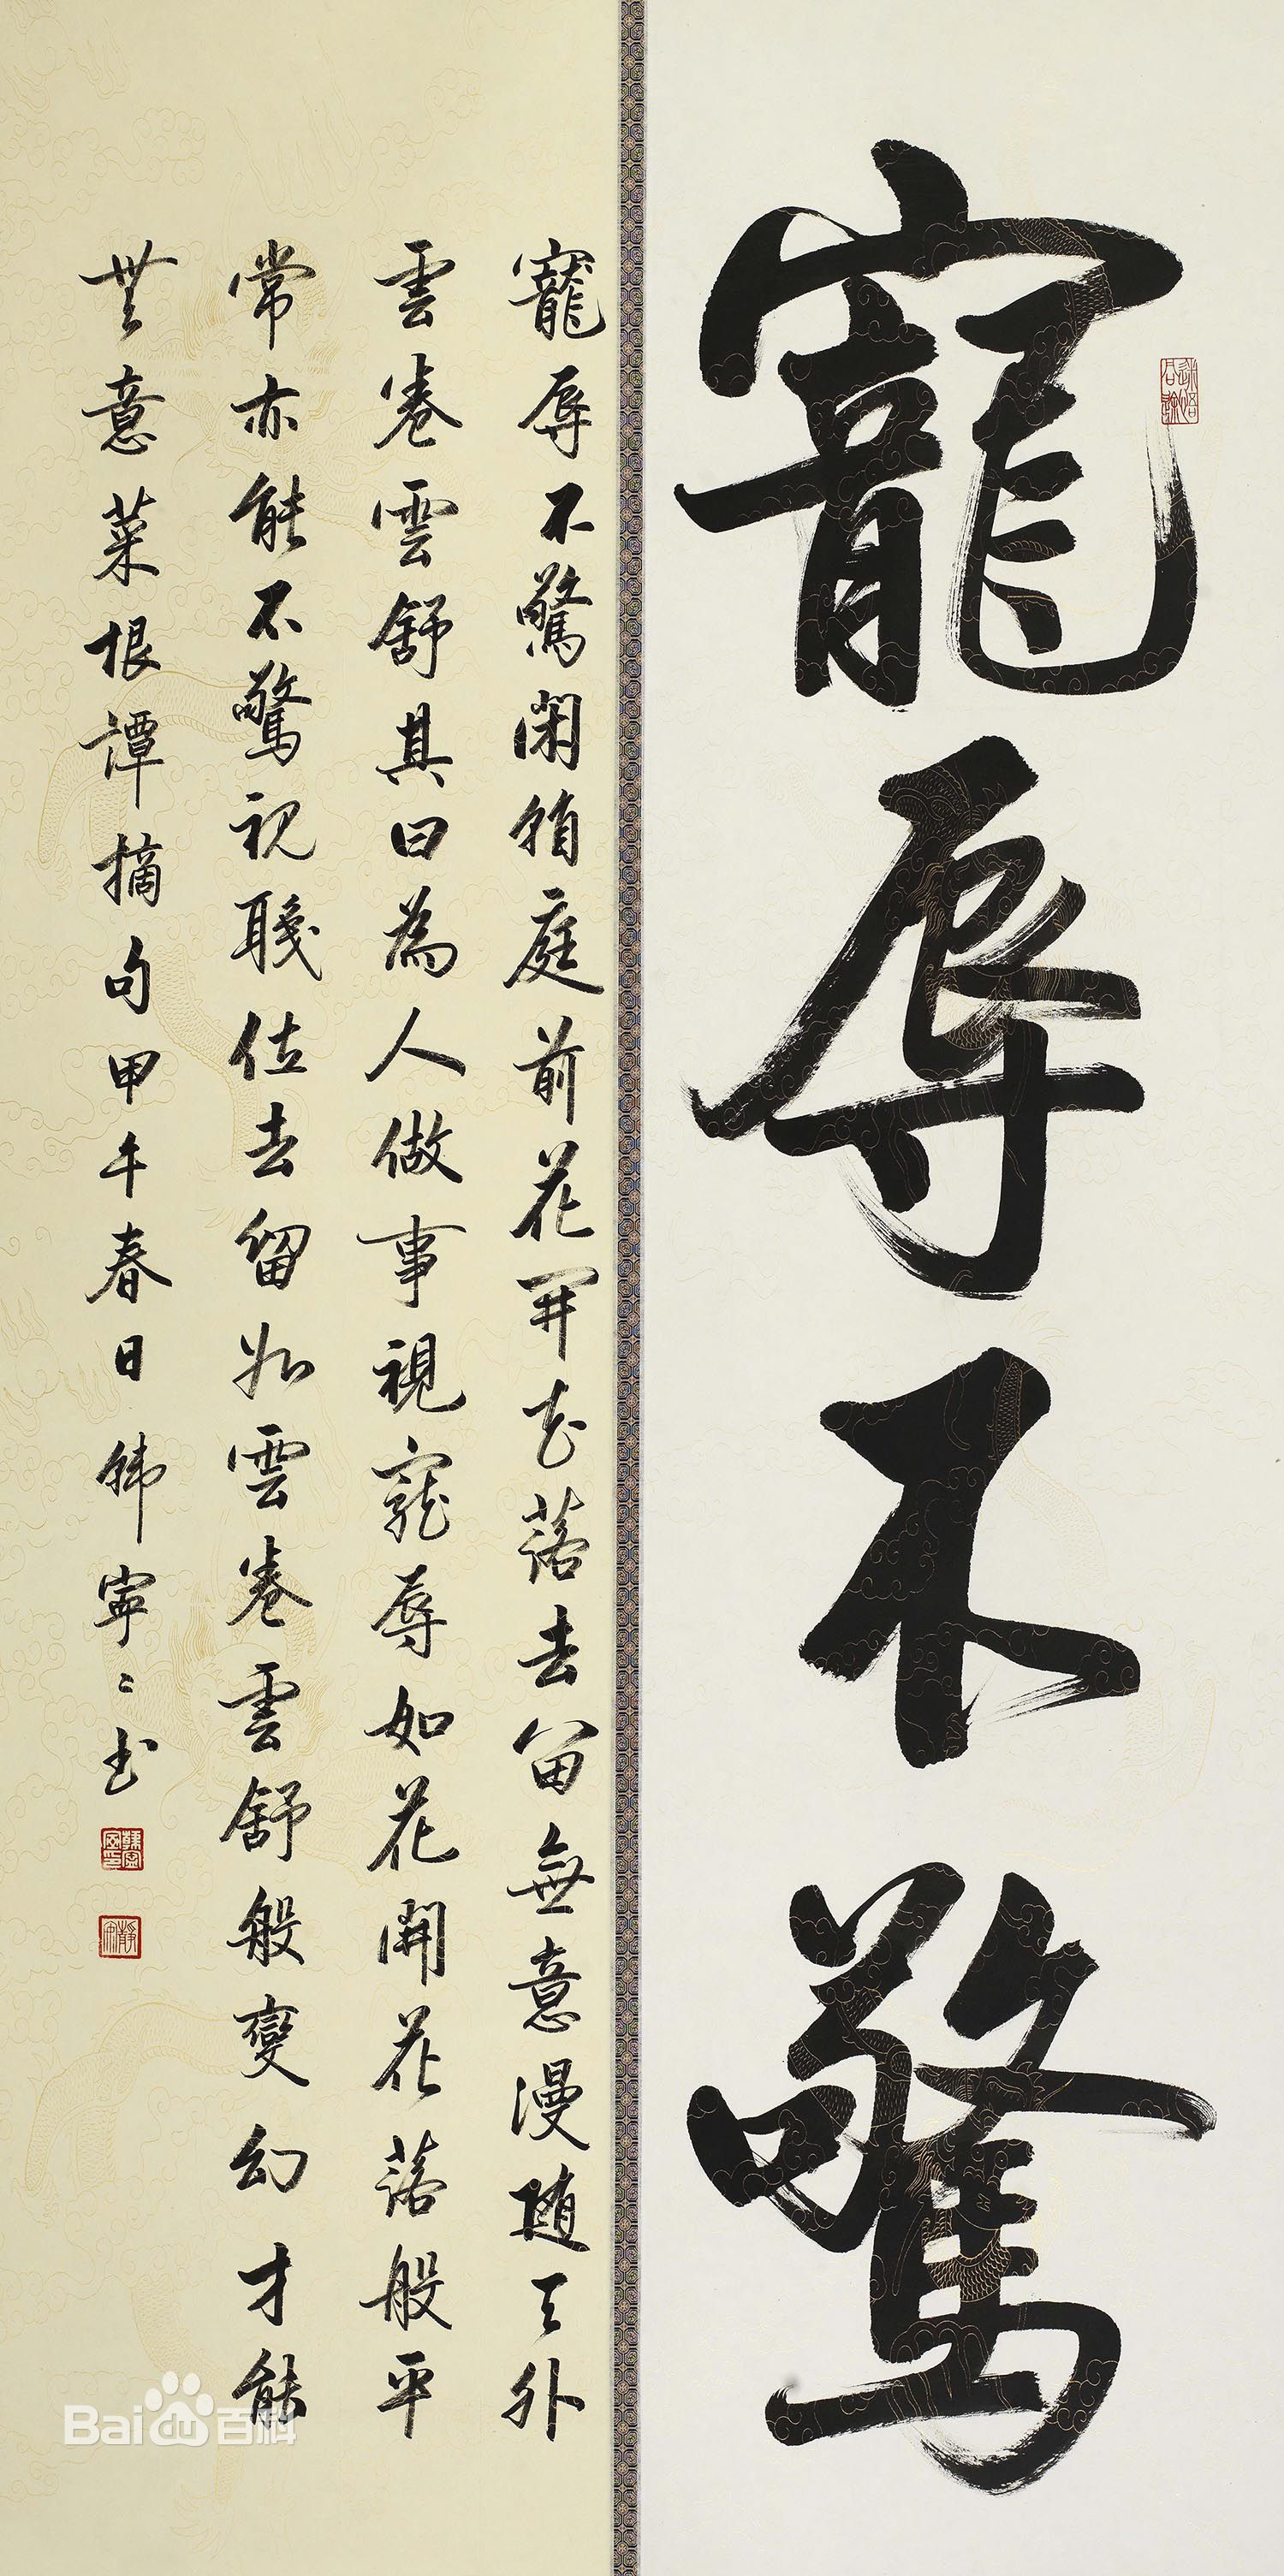 寵辱不驚
寵辱不驚閑看庭前花開花落去留無意漫随天外
雲卷雲舒其曰為人做事視寵辱如花開花落般平
常亦能不驚視職位去留如雲卷雲舒般變幻才能
無意菜根譚摘句甲午春日韩寧寧书
Baidu百科